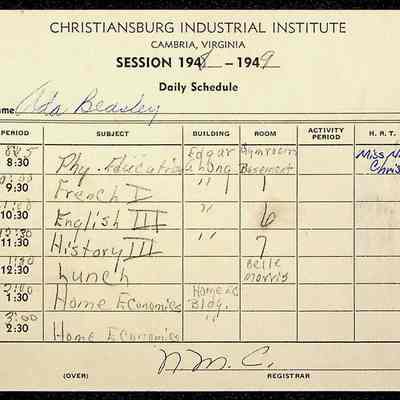 CHRISTIANSBURG INDUSTRIAL INSTITUTE
CAMBRIA, VIRGINIA
SESSION 1948 – 1949
Daily Schedule
Name Ada Beasley
PERIOD SUBJECT BUILDING ROOM ACTIVITY PERIOD H. R. T.
8:30 Phy. Education Edgar Long Gymroom Basement Miss
9:30 French I " 1
10:30 English III " 6
11:30 History III 7
12:30 Lunch Belle Morris
2:00
1:30 Home Economics Home Ec Bldg.
3:00
2:30 Home Economics "
N. M. C.
(OVER) REGISTRAR